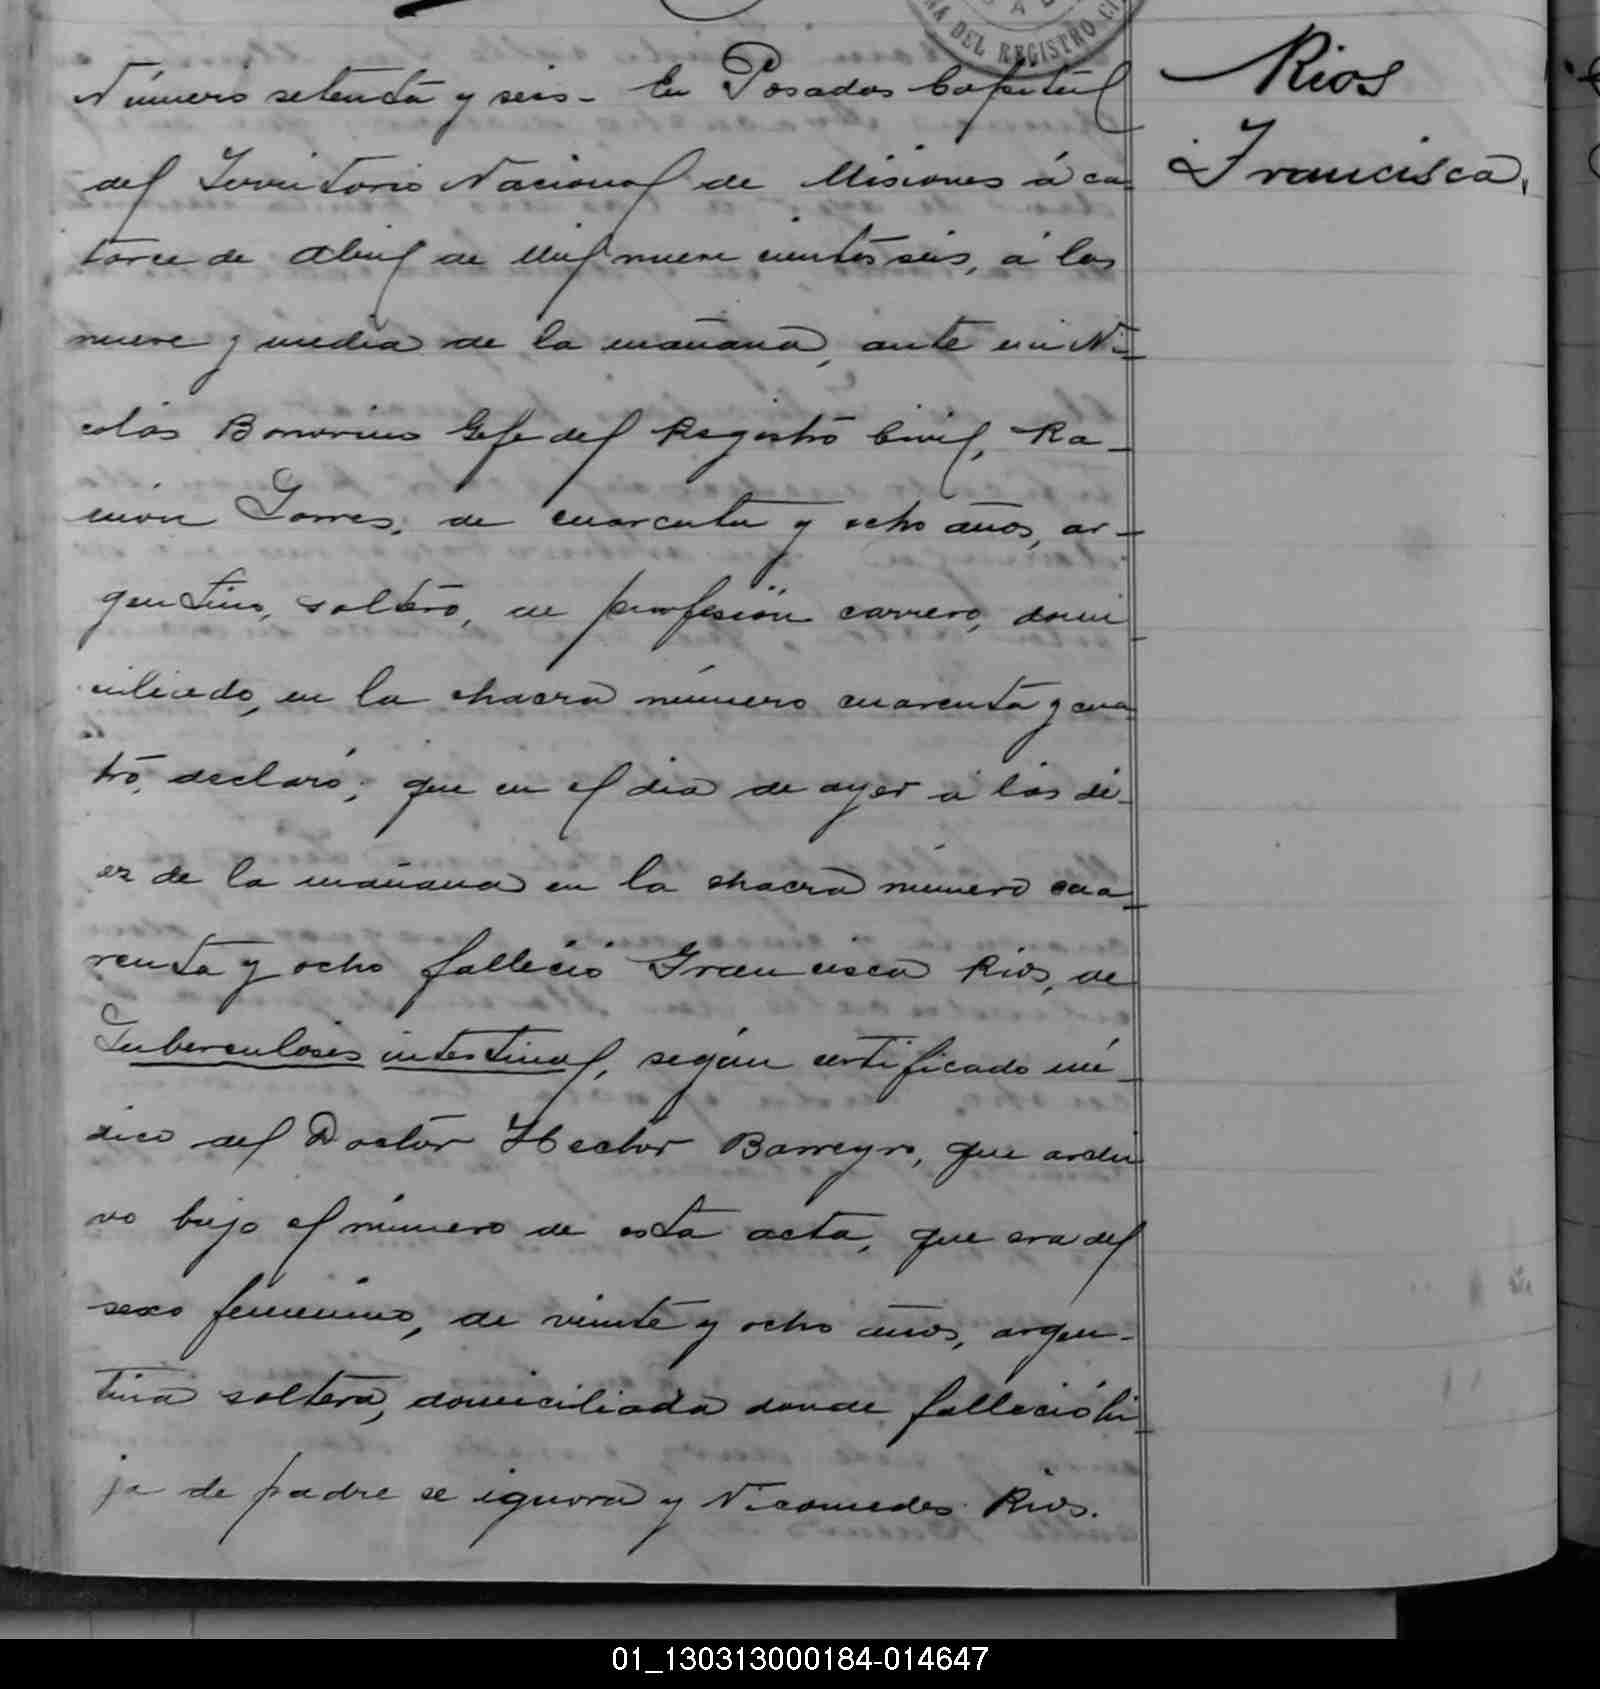 DEL REGISTRO CI
Rios
Francisca,
Número setenta y seis - En Posadas Capital
del Territorio Nacional de Misiones á ca-
torce de Abril de mil nueve cientos seis, á las
nueve y media de la mañana, ante mi Ni-
colás Bonorino Gefe del Registro Civil, Ra-
món Torres, de cuarenta y ocho años, ar-
gentino, soltero, de profesión carrero, domi
ciliado, en la chacra número cuarenta y cua
tro, declaró; que en el dia de ayer á las di-
ez de la mañana en la chacra número cua
renta y ocho falleció Francisca Rios, de
Tuberculosis intestinal, según certificado mé-
dico del Doctor Hector Barreyro, que archi
vo bajo el número de esta acta, que era del
sexo femenino, de veinte y ocho años, argen-
tina soltera, domiciliada donde falleció hi
ja de padre se ignora y Nicomedes Rios.
01_130313000184-014647